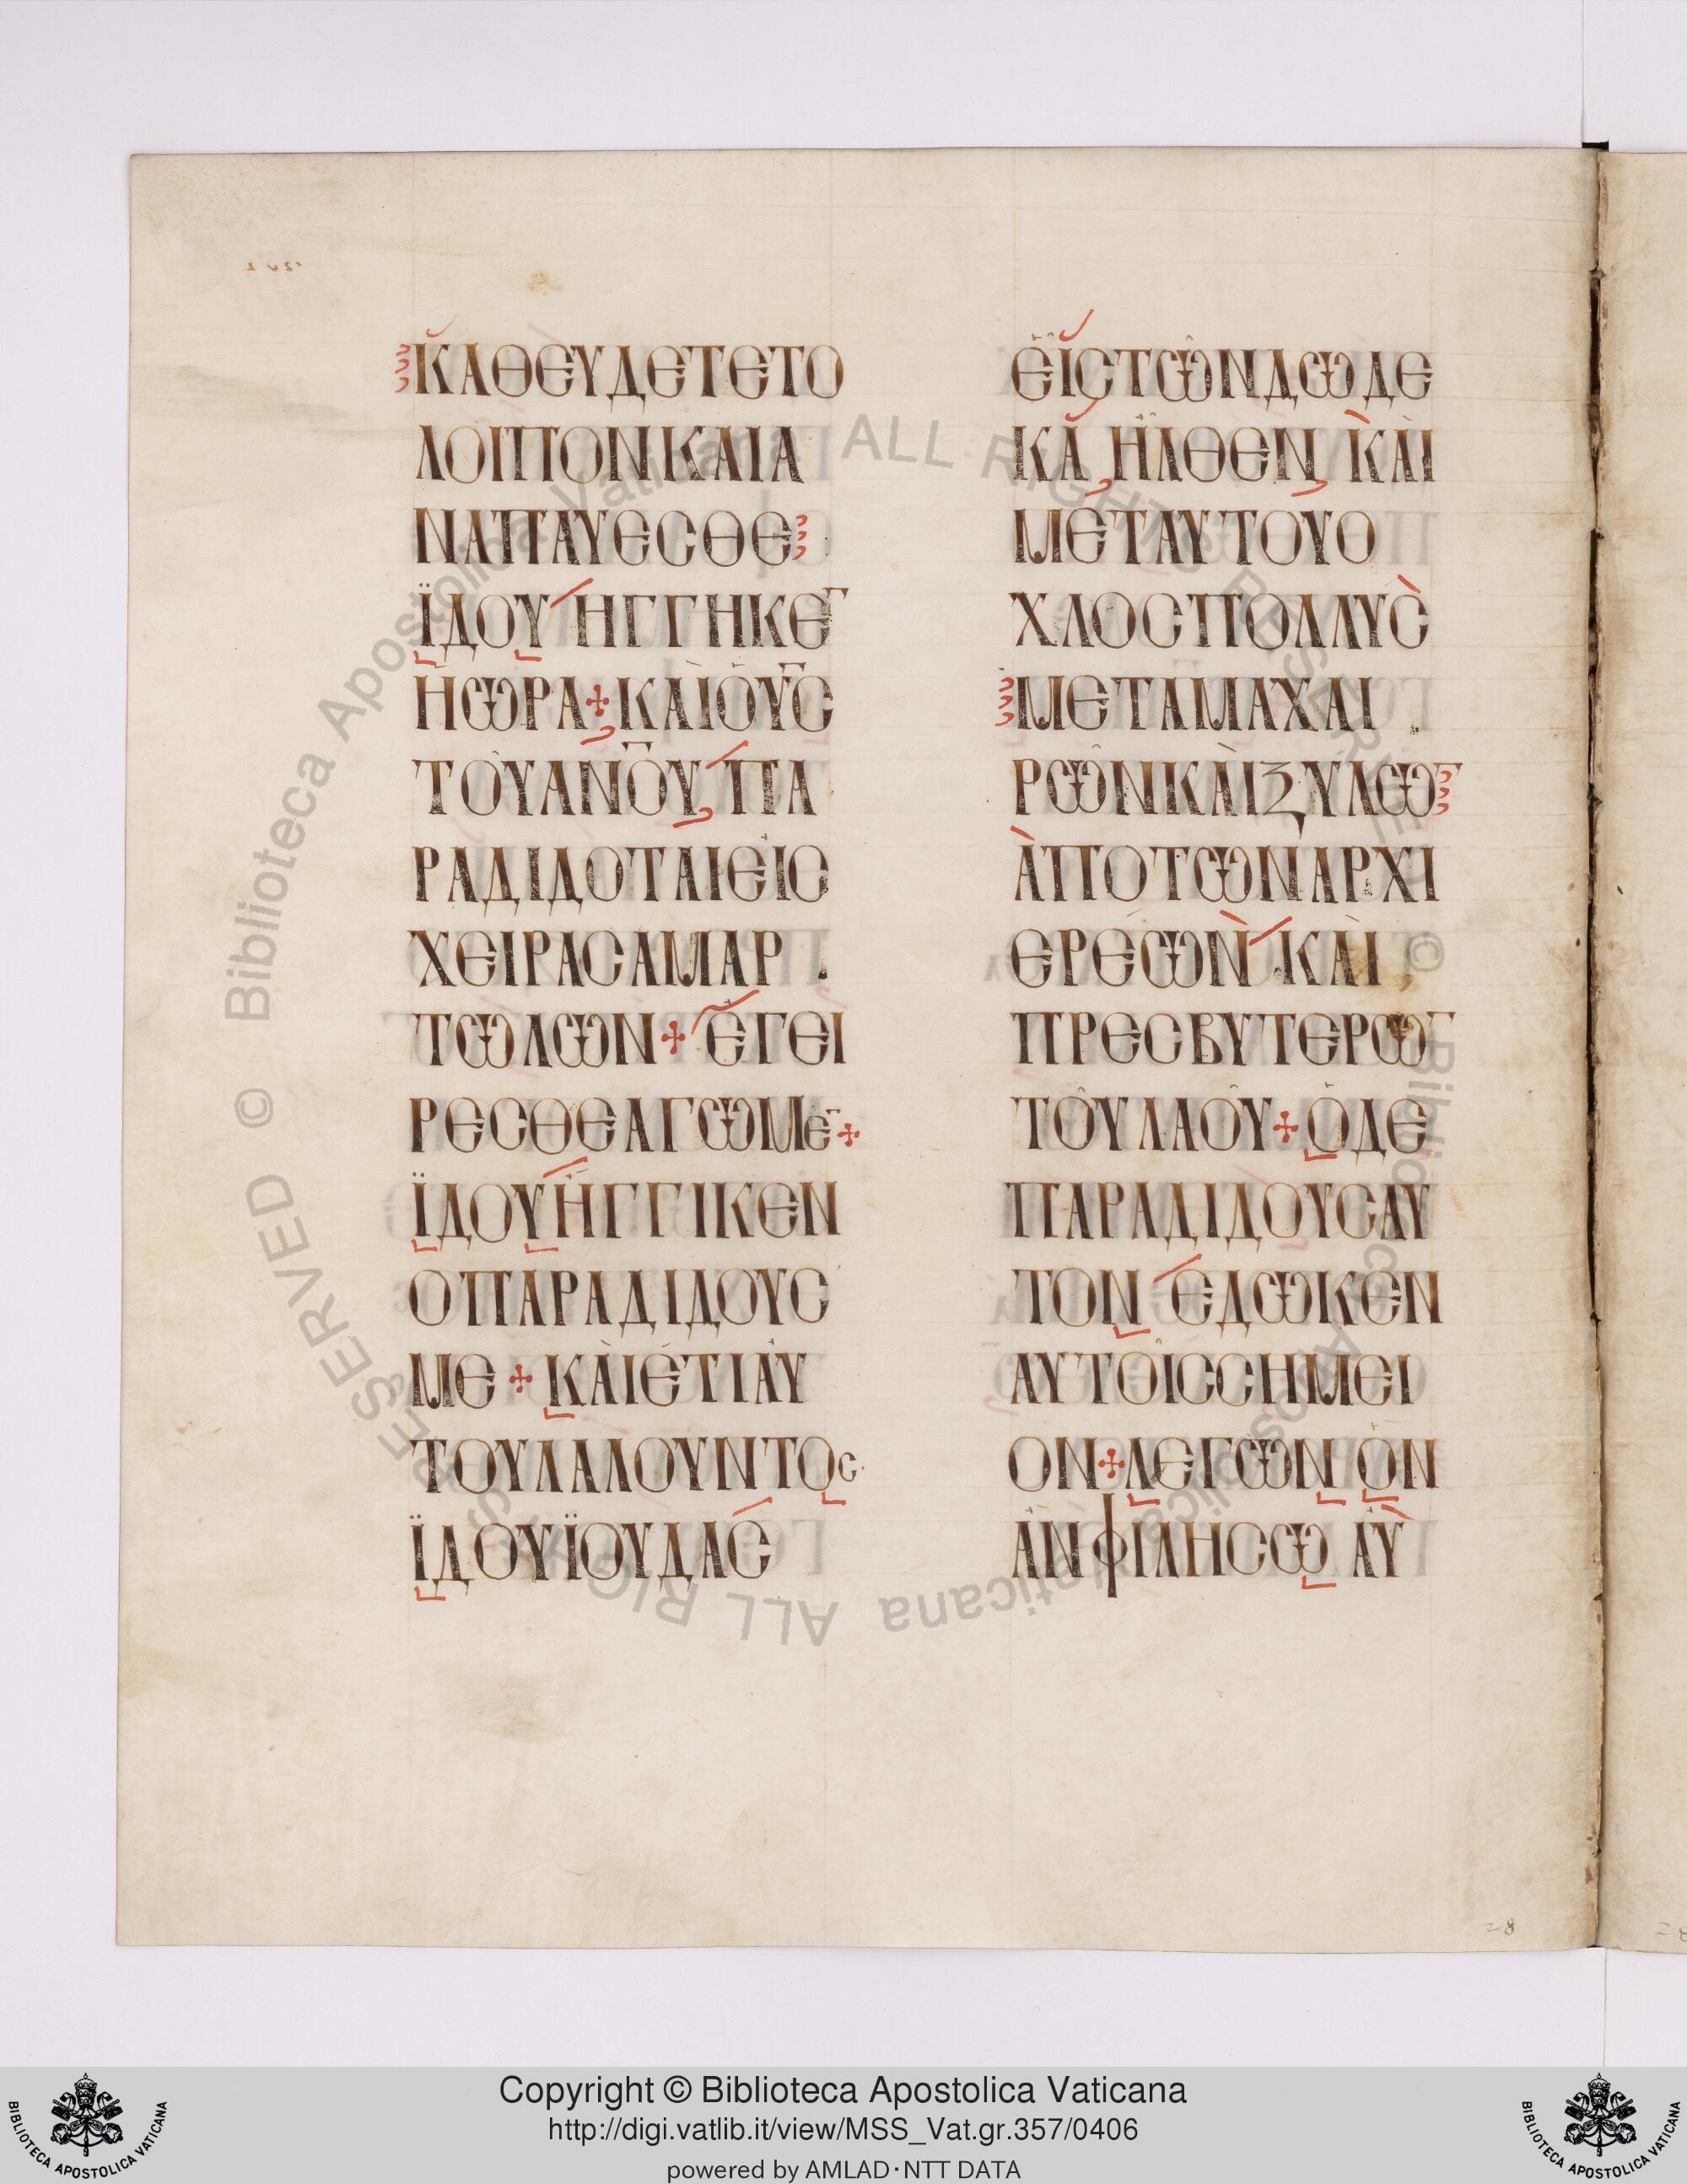 ΚΑΘΕΥΔΕΤΕΤΟ
ΛΟΙΠΟΝΚΑΙΑ
ΝΑΠΑΥΕCΘΕ
ΪΔΟΥ ΗΓΓΗΚΕ¯
ἩΩΡΑ+ΚΑῚὉΥ͞C
ΤΟΥΑΝ͞ΟΥ ΠΑ
ΡΑΔΙΔΟΤΑΙΕΙC
ΧΕΙΡΑCΑΜΑΡ
ΤΩΛΩΝ+ἘΓΕΙ
ΡΕCΘΕΑΓΩΜΕ¯+
ΪΔΟΥΗΓΓΙΚΕΝ
ΟΠΑΡΑΔΙΔΟΥC
ΜΕ+ΚΑῚΕΤΙΑΥ
ΤΟΥΛΑΛΟΥΝΤΟC
ΪΔΟΥΪΟΥΔΑC
ΕΙCΤΩΝΔΩΔΕ
ΚΑ ΗΛΘΕΝ ΚΑῚ
ΜΕΤΑΥΤΟΥΟ
ΧΛΟCΠΟΛΛΥC
ΜΕΤΑΜΑΧΑΙ
ΡΩΝΚΑῚΞΥΛΩ¯
ἈΠΟΤΩΝΑΡΧΙ
ΕΡΕΩΝ ΚΑῚ
ΠΡΕCΒΥΤΕΡΩ¯
ΤΟΥΛΑΟΥ+ὉΔΕ
ΠΑΡΑΔΙΔΟΥCΑΥ
ΤΟΝ ΕΔΩΚΕΝ
ΑΥΤΟΙCCΗΜΕΙ
ΟΝ+ΛΕΓΩΝ ὉΝ
ἈΝΦΙΛΗCΩ ΑΥ
28
Copyright © Biblioteca Apostolica Vaticana
http://digi.vatlib.it/view/MSS_Vat.gr.357/0406
powered by AMLAD・NTT DATA
BIBLIOTECA APOSTOLICA VATICANA
BIBLIOTECA APOSTOLICA VATICANA
© Biblioteca Apostolica Vaticana ALL RIGHTS RESERVED © Biblioteca Apostolica Vaticana ALL RIGHTS RESERVED